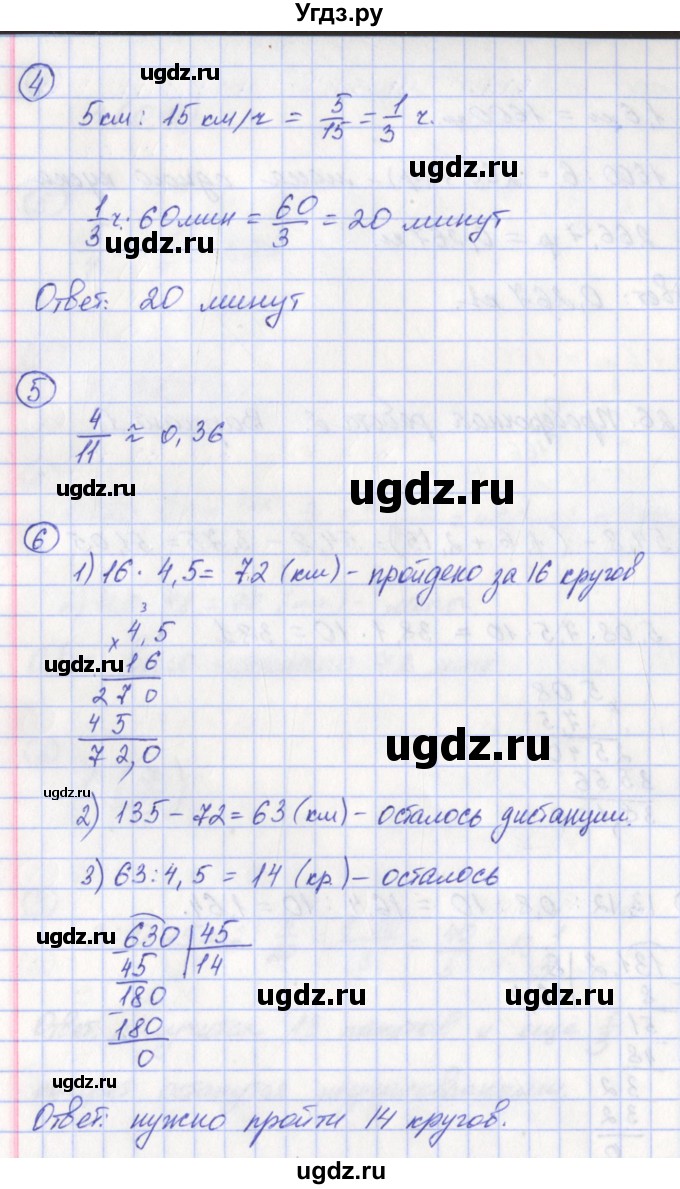 Угдз.ру
ugdz.ru
4
5км : 15 км/ч = 5/15 = 1/3 ч.
ugdz.ru
1/3 ч · 60мин = 60/3 = 20 минут
ugdz.ru
Ответ: 20 минут
5
4/11 ≈ 0,36
ugdz.ru
ugdz.ru
6
1) 16 · 4,5 = 72 (км) - пройдено за 16 кругов
3
× 4,5
ugdz.ru
16
270
45
72,0
ugdz.ru
ugdz.ru
2) 135 - 72 = 63 (км) - осталось дистанции.
3) 63 : 4,5 = 14 (кр.) - осталось
ugdz.ru
630 | 45
45 14
ugdz.ru
180
ugdz.ru
ugdz.ru
180
0
ugdz.ru
Ответ: нужно пройти 14 кругов.
ugdz.ru